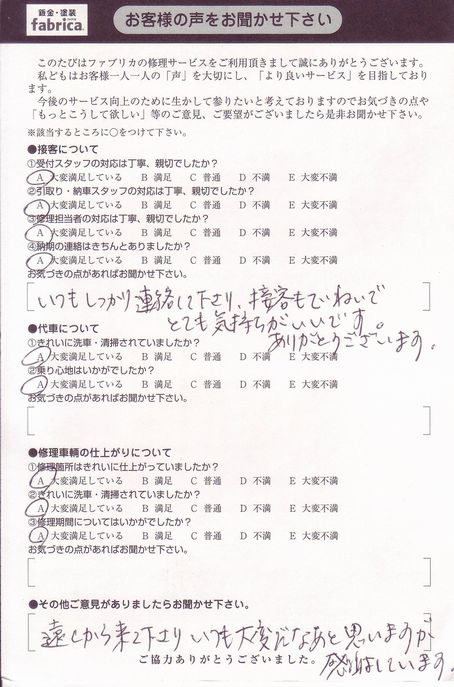 鈑金・塗装
fabrica.
お客様の声をお聞かせ下さい
このたびはファブリカの修理サービスをご利用頂きまして誠にありがとうございます。
私どもはお客様一人一人の「声」を大切にし、「より良いサービス」を目指しており
ます。
今後のサービス向上のために生かして参りたいと考えておりますのでお気づきの点や
「もっとこうして欲しい」等のご意見、ご要望がございましたら是非お聞かせ下さい。
※該当するところに○をつけて下さい。
●接客について
①受付スタッフの対応は丁寧、親切でしたか？
A 大変満足している B 満足 C 普通 D 不満 E 大変不満
②引取り・納車スタッフの対応は丁寧、親切でしたか？
A 大変満足している B 満足 C 普通 D 不満 E 大変不満
③修理担当者の対応は丁寧、親切でしたか？
A 大変満足している B 満足 C 普通 D 不満 E 大変不満
④納期の連絡はきちんとありましたか？
A 大変満足している B 満足 C 普通 D 不満 E 大変不満
お気づきの点があればお聞かせ下さい。
いつもしっかり連絡して下さり、接客もていねいで
とても気持ちがいいです。
ありがとうございます。
●代車について
①きれいに洗車・清掃されていましたか？
A 大変満足している B 満足 C 普通 D 不満 E 大変不満
②乗り心地はいかがでしたか？
A 大変満足している B 満足 C 普通 D 不満 E 大変不満
お気づきの点があればお聞かせ下さい。
●修理車輌の仕上がりについて
①修理箇所はきれいに仕上がっていましたか？
A 大変満足している B 満足 C 普通 D 不満 E 大変不満
②きれいに洗車・清掃されていましたか？
A 大変満足している B 満足 C 普通 D 不満 E 大変不満
③修理期間についてはいかがでしたか？
A 大変満足している B 満足 C 普通 D 不満 E 大変不満
お気づきの点があればお聞かせ下さい。
●その他ご意見がありましたらお聞かせ下さい。
遠くから来て下さり いつも大変だなあと思いますが
感謝しています。
ご協力ありがとうございました。